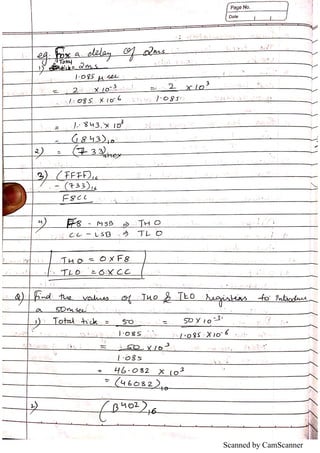 Page No.
Date
eg. For a delay of 2ms
1) Total tick = 2ms
1.085 μ sec
= 2 x 10-3 = 2 x 10³
1.085 x 10-6 1.085
= 1.843 x 10³
= (1843)10
2) = (733)hex
3) (FFFF)16
- (733)16
F8CC
4) F8 - MSB ⇒ TH0
CC - LSB ⇒ TL0
TH0 = 0xF8
TL0 = 0xCC
Q) Find the values of TH0 & TL0 registers to introduce
a 50msec
1) Total tick = 50 = 50 x 10-3
1.085 1.085 x 10-6
= 50 x 10³
1.085
= 46.082 x 10³
= (46082)10
2) (B402)16
Scanned by CamScanner